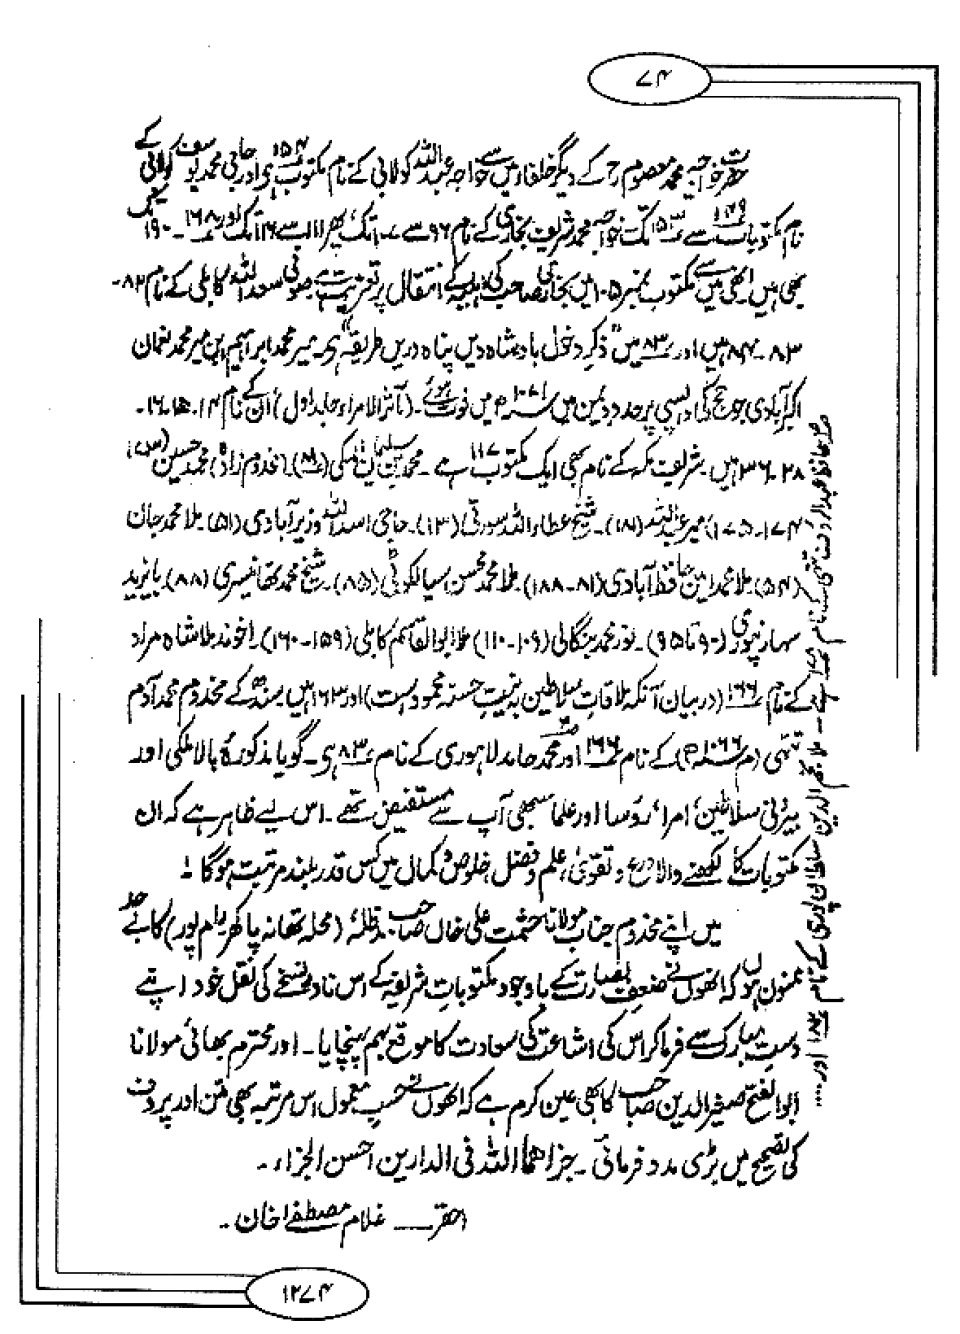 ۷۴
حضرت خواجہ محمد معصومؒ کے دیگر خلفاء میں سے خواجہ عبد اللہ کولابی کے نام مکتوب ۱۵۴ ہے اور حاجی محمد یوسف کولابی کے
نام مکتوبات ۱۴۹ سے ۱۵۳ تک خواجہ محمد شریف بخاری کے نام ۹۶ سے ۱۰۷ تک پھر ۱۱۱ سے ۱۱۶ تک اور ۱۶۸ ۔ ۱۹۰ تک
بھی ہیں انھی میں سے مکتوب نمبر ۱۰۵ میں بخاری صاحب کی اہلیہ کے انتقال پر تعزیت ہے صوفی سعد اللہ کابلی کے نام ۸۲۔
۸۳۔ ۸۴ ہیں اور ۸۳ میں "ذکر دخول بادشاہ دیں پناہ دریں طریقہ" ہے۔ میر محمد ابراہیم ابن میر محمد نعمان
اکبرآبادی جو حج کی واپسی پر حدود یمن میں ۱۰۷۱ھ میں فوت ہوئے۔ (مآثر الامراء جلد اول) ان کے نام ۱۴۔ ۱۵۔ ۱۶۔
۲۸۔ ۳۶ ہیں۔ شریف مکہ کے نام بھی ایک مکتوب ۱۱۷ ہے۔ محمد بن سلیمان مکی، (مخدوم زادہ) محمد حسین
۱۷۴۔ ۱۷۵) میر عبد اللہ (۱۸۱)۔ شیخ عطاء اللہ سورتی (۱۳)۔ حاجی اسد اللہ وزیرآبادی (۵۱)۔ ملا محمد جان
(۵۴) ملا محمد امین حافظ آبادی (۸۱۔ ۱۸۸)۔ ملا محمد محسن سیالکوٹی (۸۵)۔ شیخ محمد تھانیسری (۸۸) بایزید
سہارنپوری (۹۰ تا ۹۵)۔ نور محمد بنگالی (۱۰۹۔ ۱۱۰) ملا ابو القاسم کابلی (۱۵۹۔ ۱۶۰)۔ اخوند ملا شاہ مراد
کے نام ۱۶۶ (در بیان آنکہ ملاقات سلاطین بہ نیت حسنہ محمود است) اور ۱۶۳ ہیں سندھ کے مخدوم محمد آدم
تتھی (م ۱۰۶۶ھ) کے نام ۱۶۶ اور محمد حامد لاہوری کے نام ۸۳ ہے۔ گویا مذکورۂ بالا ملکی اور
بیرونی سلاطین، امرا، رؤسا اور علما سبھی آپ سے مستفیض تھے۔ اس لیے ظاہر ہے کہ ان
مکتوبات کا لکھنے والا ورع و تقویٰ، علم و فضل، خلوص و کمال میں کس قدر بلند مرتبت ہوگا !
میں اپنے مخدوم جناب مولانا حشمت علی خاں صاحب مدظلہٗ (محلہ تھانہ پاکھر رام پور) کا بے حد
ممنون ہوں کہ انھوں نے ضعف بصارت کے باوجود مکتوبات شریفہ کے اس نادر نسخے کی نقل خود اپنے
دست مبارک سے فرما کر اس کی اشاعت کی سعادت کا موقع بہم پہنچایا۔ اور محترم بھائی مولانا
ابو الفتح صغیر الدین صاحب کا بھی عین کرم ہے کہ انھوں نے حسب معمول اس مرتبہ بھی متن اور پروف
کی تصحیح میں بڑی مدد فرمائی۔ جزاھما اللہ فی الدارین احسن الجزاء۔
احقر ــــ غلام مصطفےٰ خان۔
حافظ عبد الرؤف تتھی کے نام ہے۔ ملا نجم الدین سلطان پوری کے نام اور....
۱۲۷۴